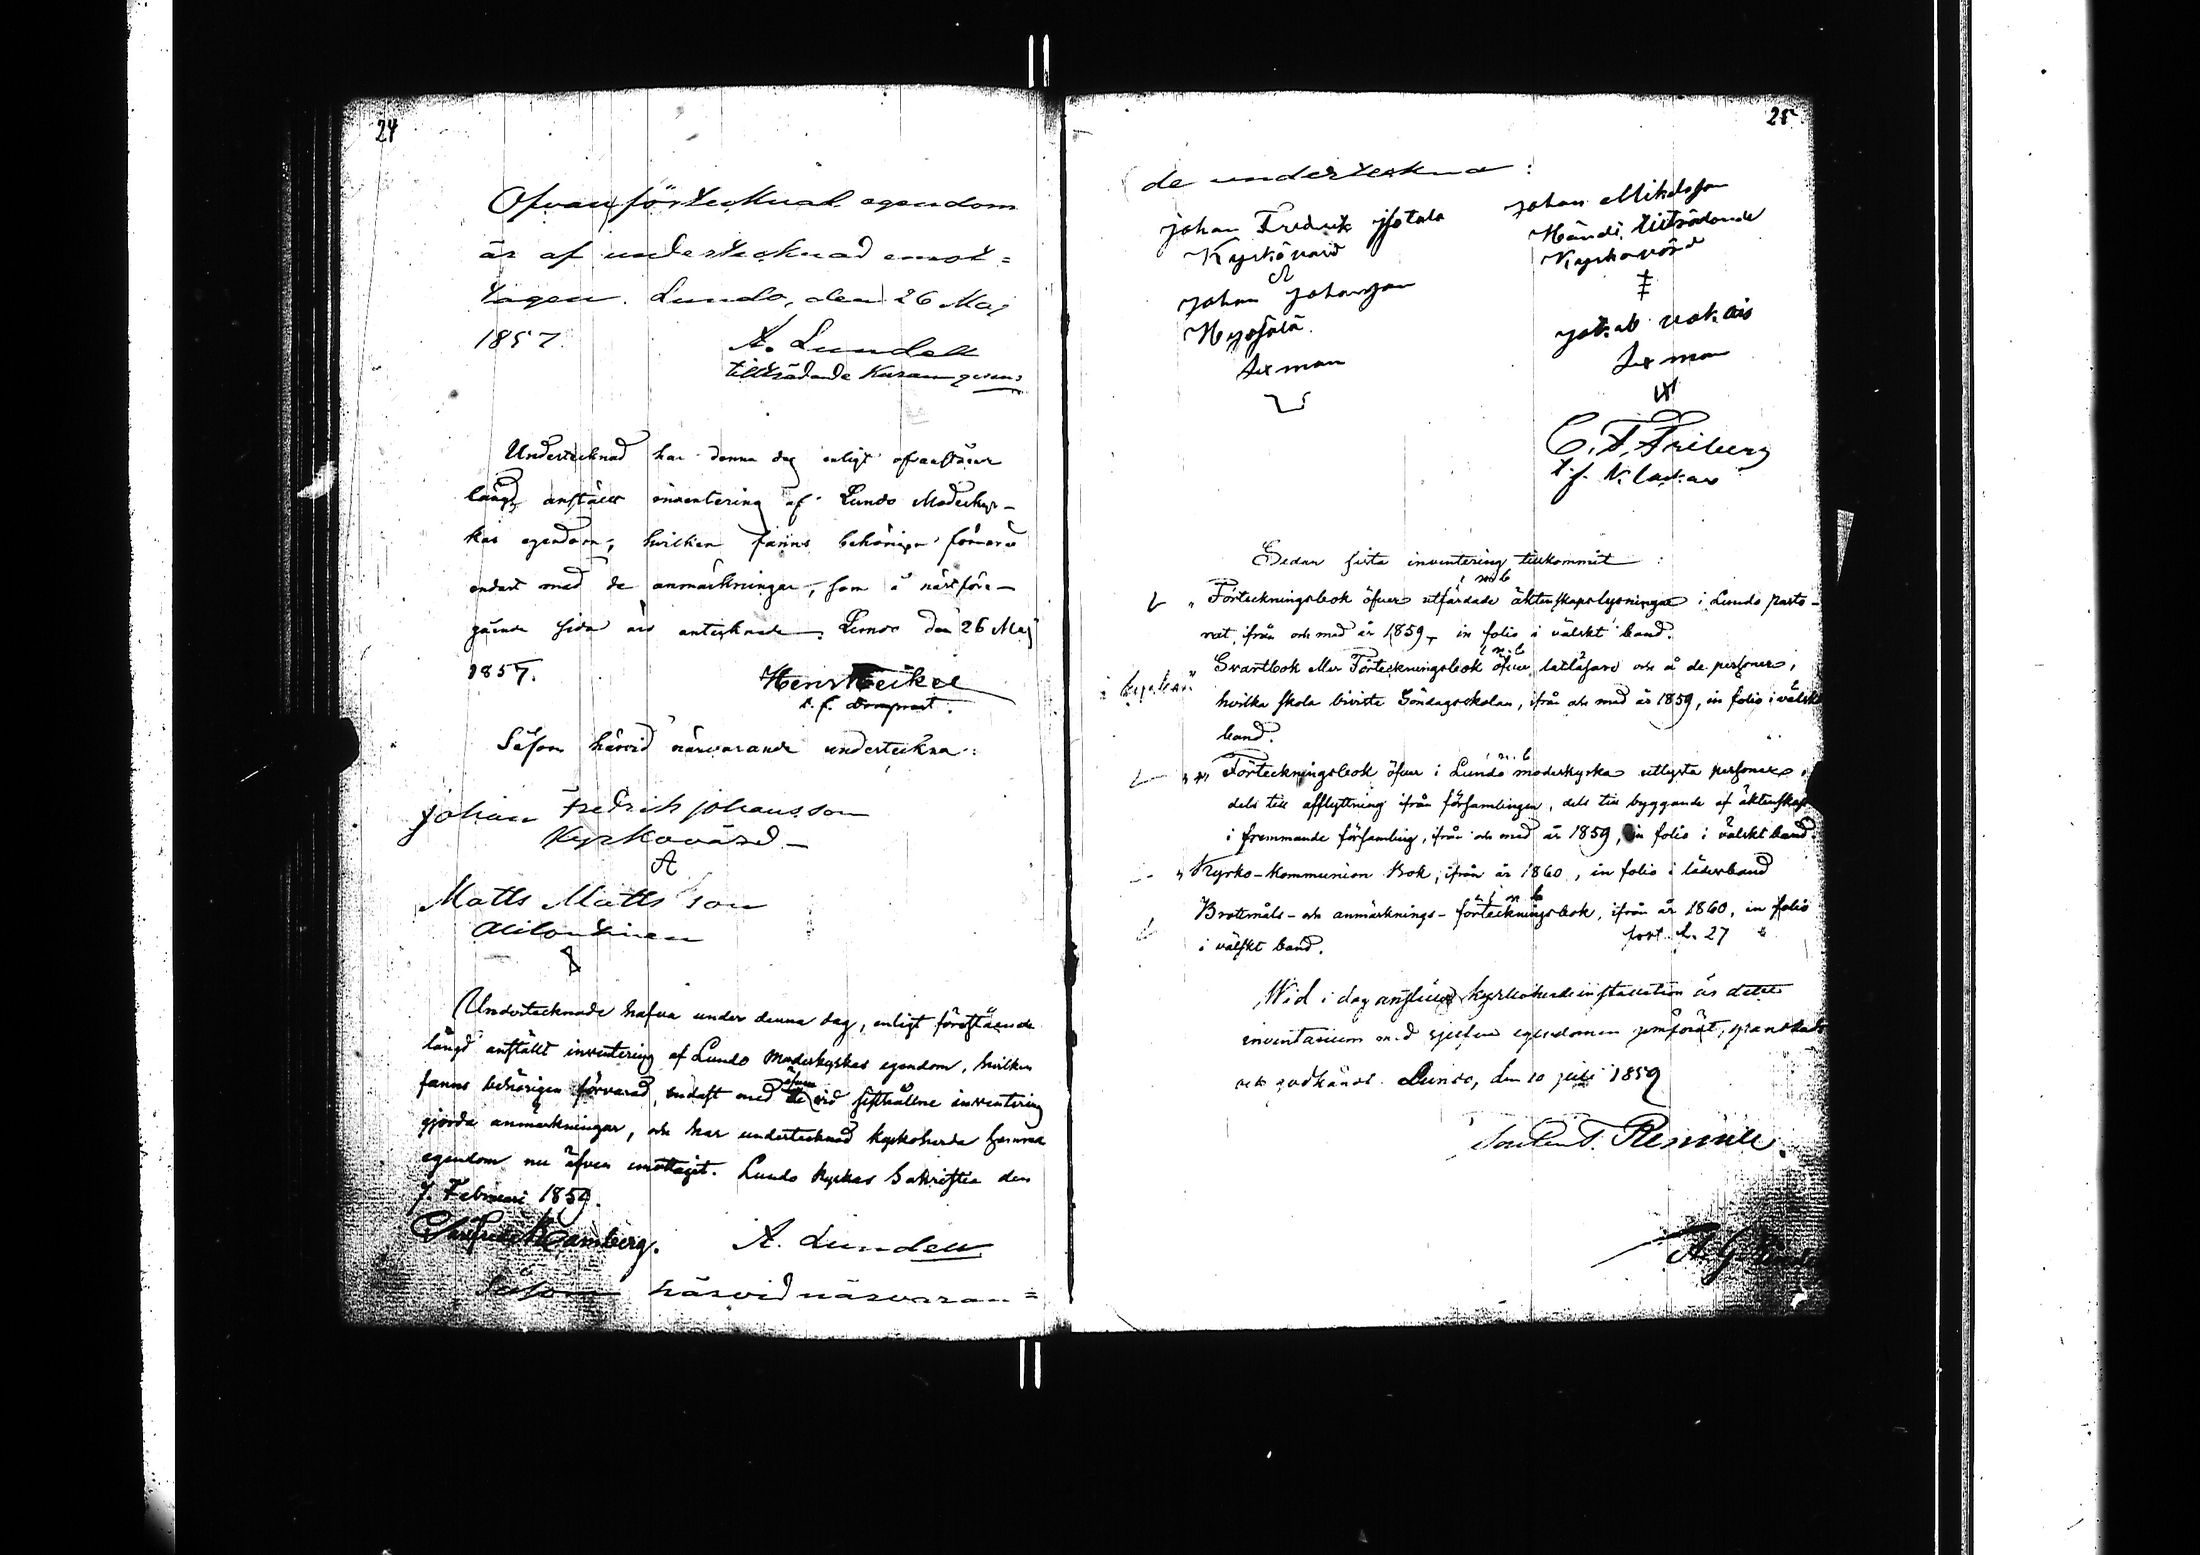 24
Ofvanförtecknad egendom
är af undertecknad emot=
tagen. Lundo, den 26 Maj
1857.
A. Lundell
tillträdande
Undertecknad har denna dag enligt ofvanstående
längd anställt inventering af Lundo Moderkyr-
kas egendom, hvilken fanns behörigen förvarad
endast med de anmärkningar, som å nästföre-
gående sida äro antecknade. Lundo den 26 Maj
1857.
Henr Heikel
t. f. Domprost.
Såsom härvid närvarande underteckna:
Johan Fredrich Johansson
Kyrkovärd
Matts Mattsson
Undertecknade hafva under denna dag, enligt förestående
längd anställt inventering af Lundo Moderkyrkas egendom, hvilken
fanns behörigen förvarad, endast med de vid sisthållne inventering
gjorda anmärkningar, och har undertecknad kyrkoherde samma
egendom nu äfven emottagit. Lundo kyrkas Sakristia den
7. Februari 1859.
Ramberg. A. Lundell
Såsom härvid närvaran=
25
de underteckna:
Johan Fredrik
Kyrkovärd
Johan Mikelsson
tillträdande
Kyrkovärd
Johan Johansson
Sexman
Jakab
Sexman
C. F. Friberg
t. f. Klockare
Sedan sista inventering tillkommit:
" Förteckningsbok öfver utfärdade äktenskapslysningar i Lundo pasto-
rat, ifrån och med år 1859, in folio i välskt band.
Svartbok eller Förteckningsbok öfver latläsare och å de personer,
hvilka skola bivista Söndagsskolan, ifrån och med år 1859, in folio i välskt
band.
" Förteckningsbok öfver i Lundo moderkyrka utlysta personer,
dels till afflyttning ifrån församlingen, dels till byggande af äktenskap
i främmande församling, ifrån och med år 1859, in folio i välskt band.
" Kyrko-kommunion Bok, ifrån år 1860, in folio i läderband
Brottmåls- och anmärknings-förteckningsbok, ifrån år 1860, in folio
i välskt band.
Wid i dag anställd kyrkoherdeinstallation är detta
inventarium med sjelfva egendomen jemfördt, granskadt
och godkändt. Lundo, den 10 juli 1859